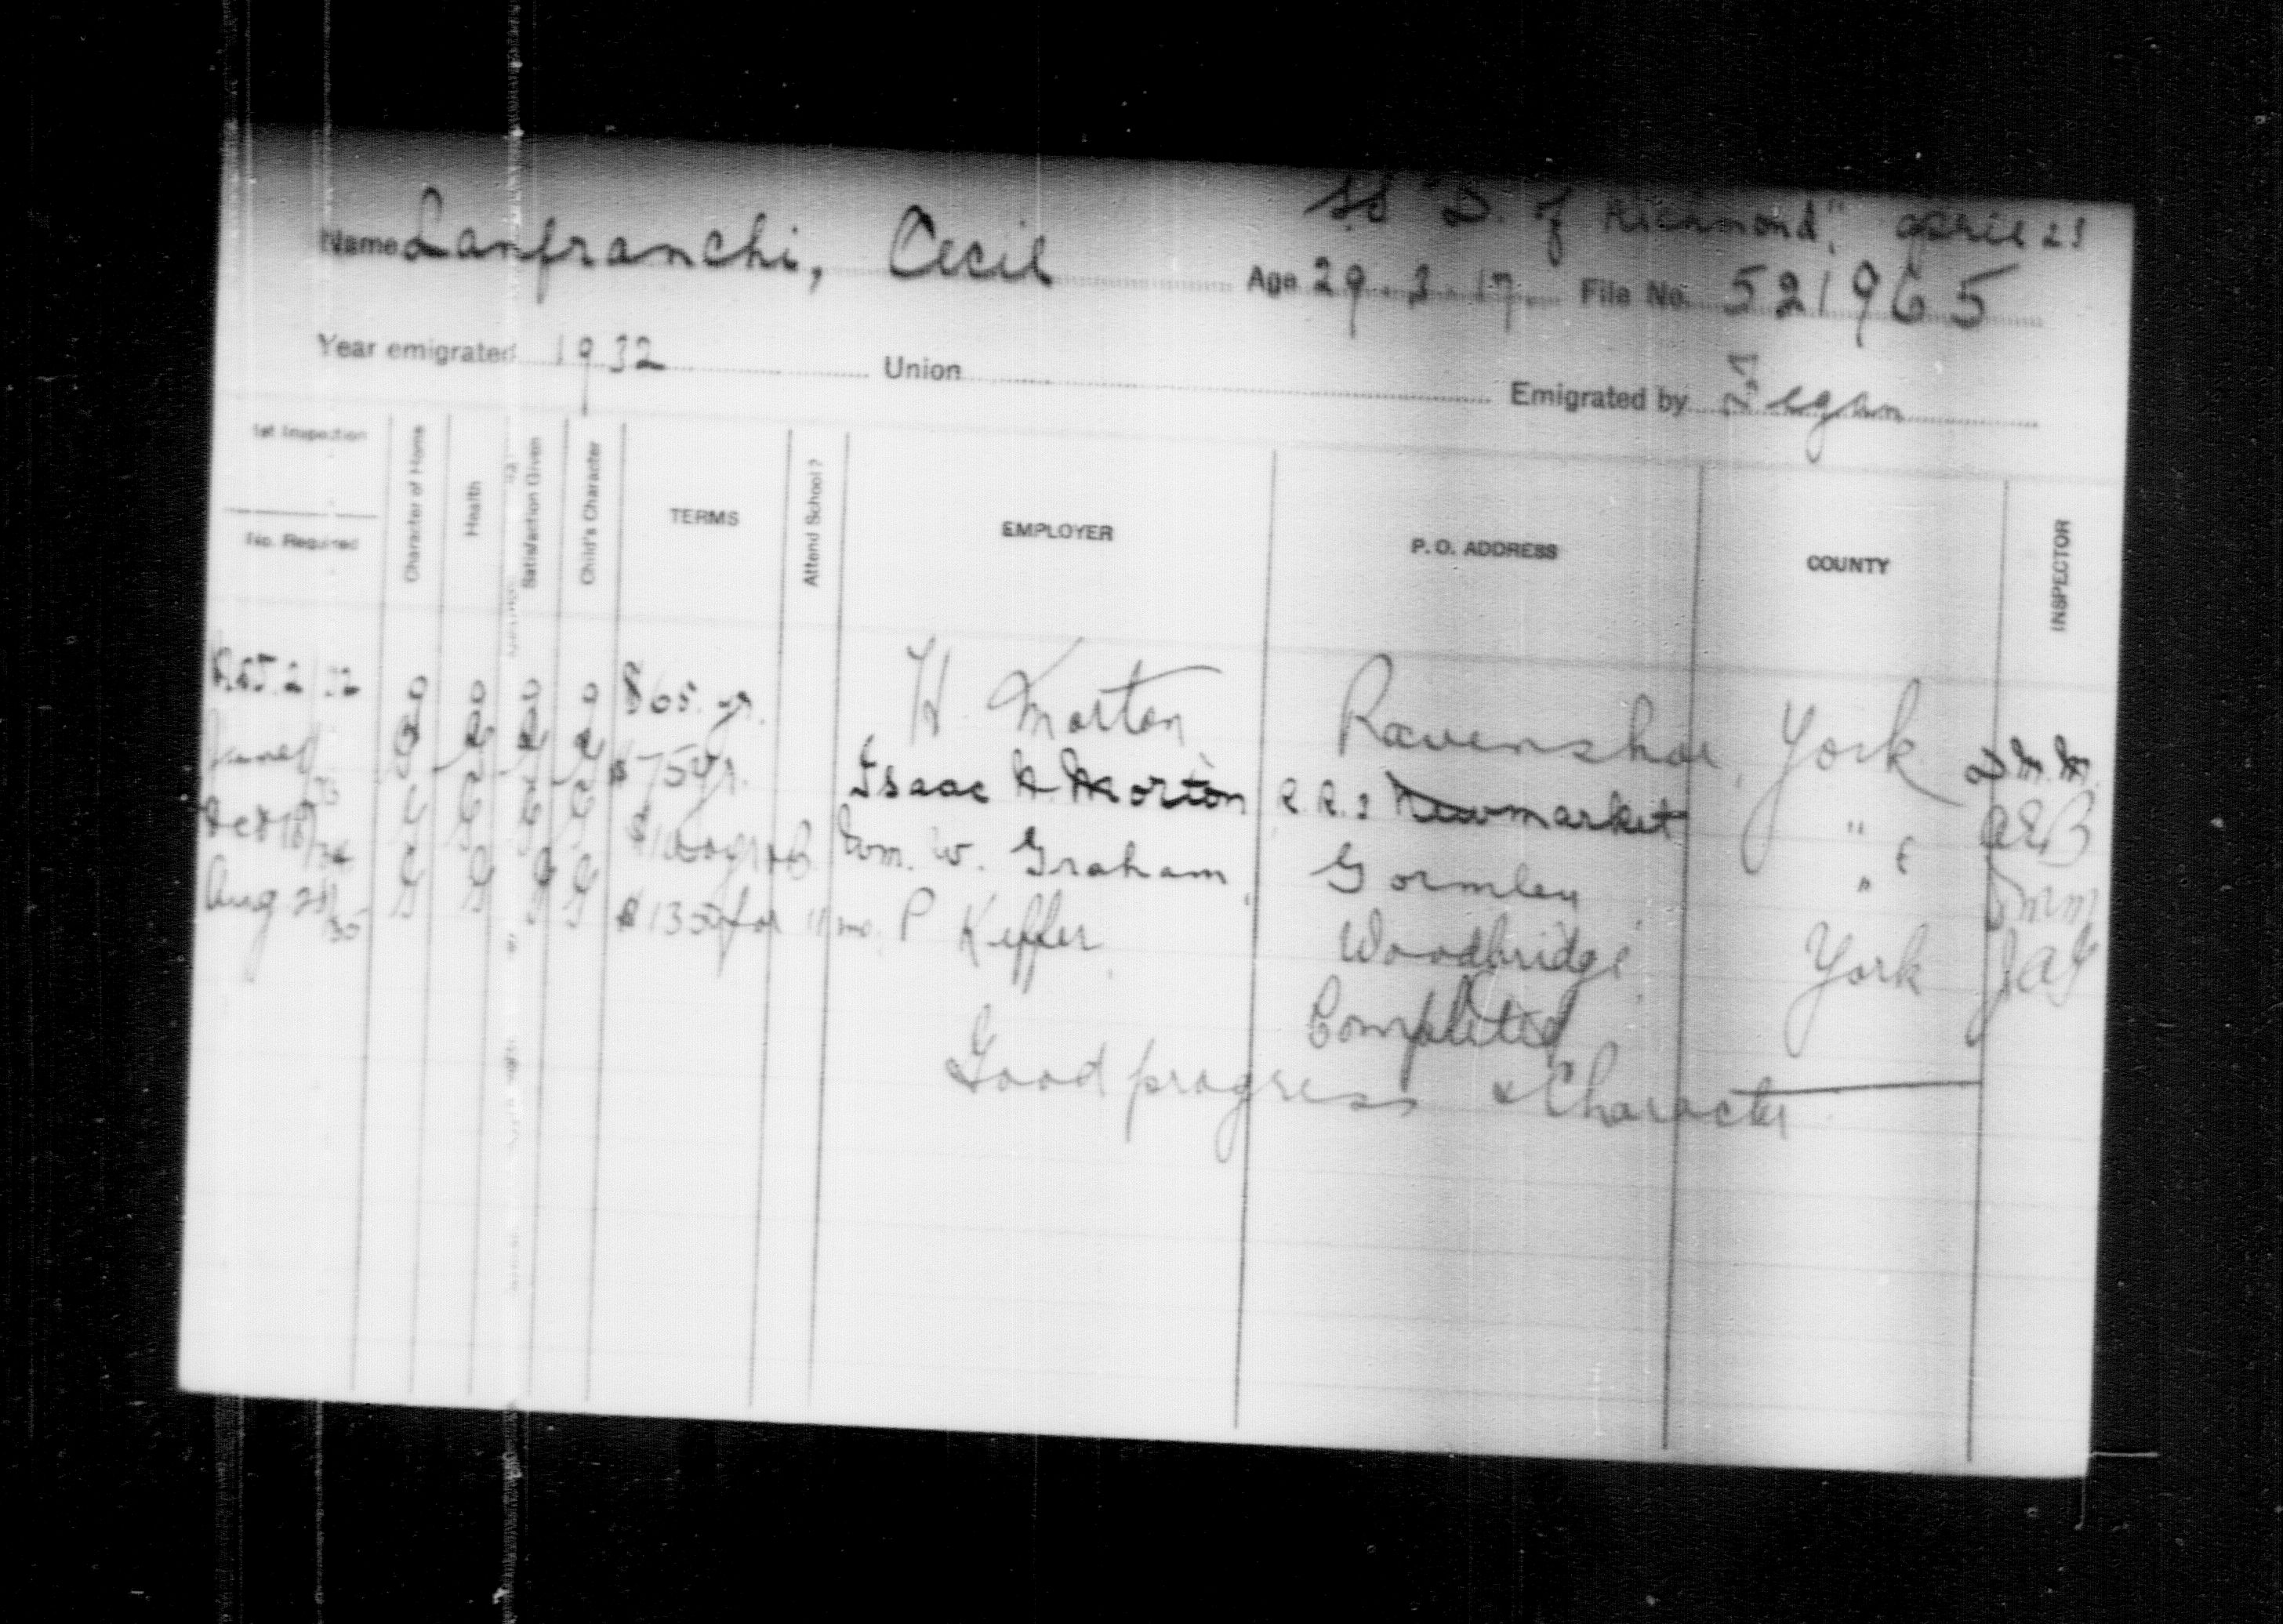 SS "D. of Richmond", April 23
Name Lanfranchi, Cecil Age 29.3.17. File No. 521965
Year emigrated 1932 Union Emigrated by Fegan
1st Inspection
No. Required
Character of Home
Health
Satisfaction Given
Child's Character
TERMS
Attend School?
EMPLOYER
P. O. ADDRESS
COUNTY
INSPECTOR
2 32 g g g g $65. yr. H. Morton Ravenshoe, York
June G G G G $75 yr. Isaac H. Morton R.R. Newmarket " AEB
18/34 G G G G Wm. W. Graham, Gormley "
Aug 28/35 G G G G $135 for 11 mo. P Keffer Woodbridge York
Completed
Good progress & Character